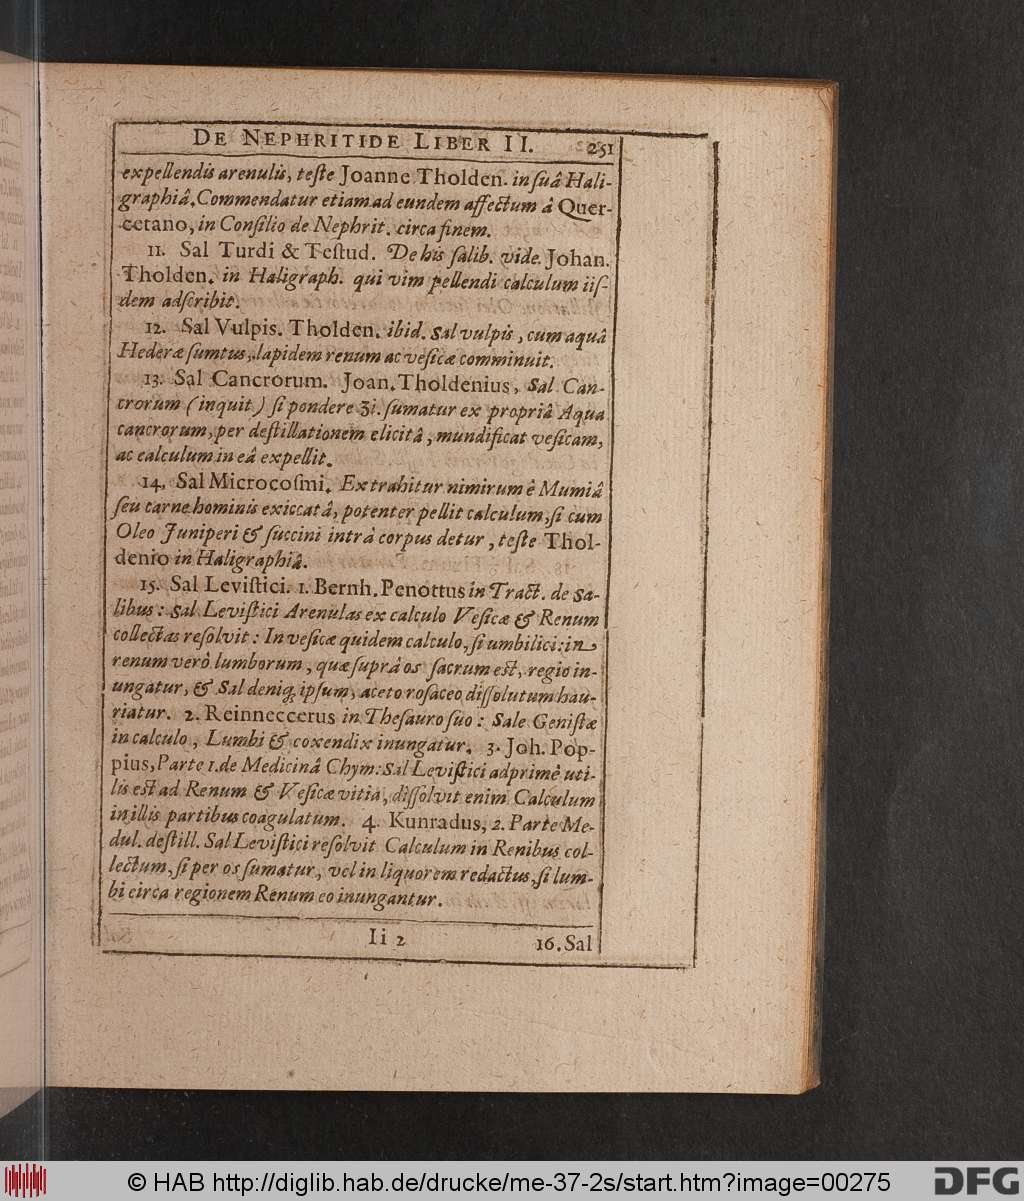 DE NEPHRITIDE LIBER II. 251
expellendis arenulis, teſte Joanne Tholden. in ſuâ Hali-
graphiâ. Commendatur etiam ad eundem affectum â Quer-
cetano, in Conſilio de Nephrit. circa finem.
11. Sal Turdi & Teſtud. De his ſalib. vide Johan.
Tholden. in Haligraph. qui vim pellendi calculum iiſ-
dem adſcribit.
12. Sal Vulpis. Tholden. ibid. Sal vulpis, cum aquâ
Hederæ ſumtus, lapidem renum ac veſicæ comminuit.
13. Sal Cancrorum. Joan. Tholdenius, Sal Can-
crorum (inquit) ſi pondere ʒi. ſumatur ex propriâ Aqua
cancrorum, per deſtillationem elicitâ, mundificat veſicam,
ac calculum in eâ expellit.
14. Sal Microcoſmi. Extrahitur nimirum ê Mumiâ
ſeu carne hominis exiccatâ, potenter pellit calculum, ſi cum
Oleo Juniperi & ſuccini intrà corpus detur, teſte Thol-
denio in Haligraphiâ.
15. Sal Leviſtici. 1. Bernh. Penottus in Tract. de Sa-
libus: Sal Leviſtici Arenulas ex calculo Veſicæ & Renum
collectas reſolvit: In veſicæ quidem calculo, ſi umbilici: in
renum verò lumborum, quæ ſuprà os ſacrum est, regio in-
ungatur, & Sal deniq; ipſum, aceto roſaceo diſſolutum hau-
riatur. 2. Reinneccerus in Theſauro ſuo: Sale Geniſtæ
in calculo, Lumbi & coxendix inungatur. 3. Joh. Pop-
pius, Parte 1. de Medicinâ Chym: Sal Leviſtici adprimè uti-
lis est ad Renum & Veſicæ vitia, diſſolvit enim Calculum
in illis partibus coagulatum. 4. Kunradus, 2. Parte Me-
dul. deſtill. Sal Leviſtici reſolvit Calculum in Renibus col-
lectum, ſi per os ſumatur, vel in liquorem redactus, ſi lum-
bi circa regionem Renum eo inungantur.
Ii 2 16. Sal
© HAB http://diglib.hab.de/drucke/me-37-2s/start.htm?image=00275 DFG